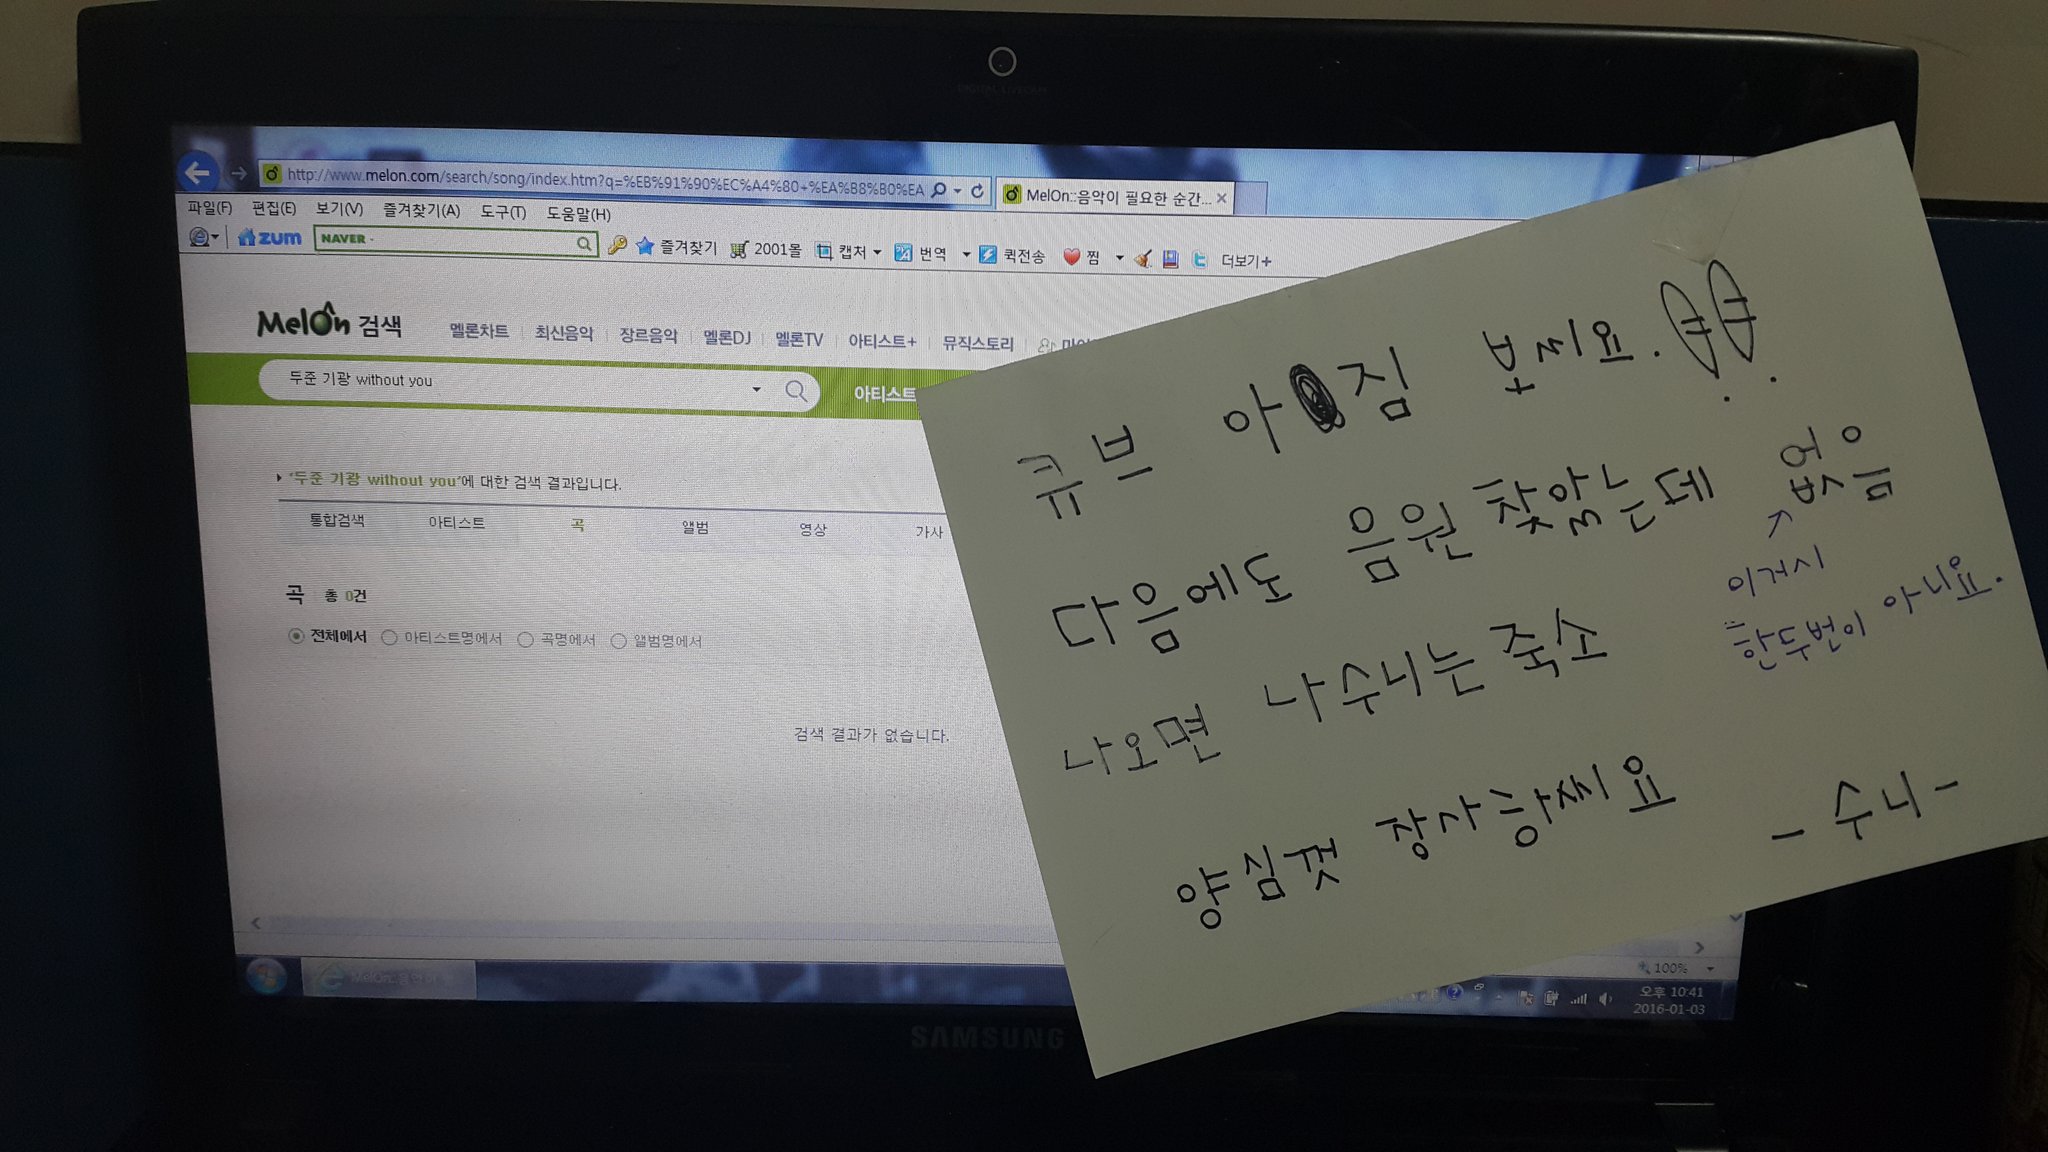 DIGITAL LIVECAM
http://www.melon.com/search/song/index.htm?q=%EB%91%90%EC%A4%80+%EA%B8%B0%EA
MelOn::음악이 필요한 순간...
파일(F) 편집(E) 보기(V) 즐겨찾기(A) 도구(T) 도움말(H)
zum NAVER 즐겨찾기 2001몰 캡처 번역 퀵전송 찜 더보기+
Melon 검색 멜론차트 최신음악 장르음악 멜론DJ 멜론TV 아티스트+ 뮤직스토리
두준 기광 without you 아티스트
'두준 기광 without you'에 대한 검색 결과입니다.
통합검색 아티스트 곡 앨범 영상 가사
곡 총 0건
전체에서 아티스트명에서 곡명에서 앨범명에서
검색 결과가 없습니다.
MelOn::음악이
100%
오후 10:41
2016-01-03
SAMSUNG
큐브 아짐 보씨요.
다음에도 음원 찾았는데 없음
나오면 나 수니는 죽소
이거시
한두번이 아니요.
양심껏 장사하씨요
- 수니 -